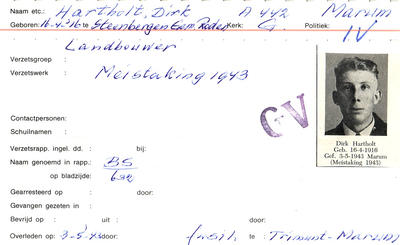 Naam etc.: Hartholt, Dirk A 442 Marum
Geboren: 16-4-'16 te Steenbergen Gem. Roden Kerk: G. Politiek:
IV
Landbouwer
Verzetsgroep :
Verzetswerk : Meistaking 1943
GV
Contactpersonen:
Schuilnamen :
Dirk Hartholt
Geb. 16-4-1916
Gef. 3-5-1943 Marum
(Meistaking 1943)
Verzetsrapp. ingel. dd. : bij:
Naam genoemd in rapp.: BS
op bladzijde: 632
Gearresteerd op : door:
Gevangen gezeten in :
Bevrijd op : uit : door:
Overleden op : 3-5-'43 door: (fusil. te : Trimunt-Marum